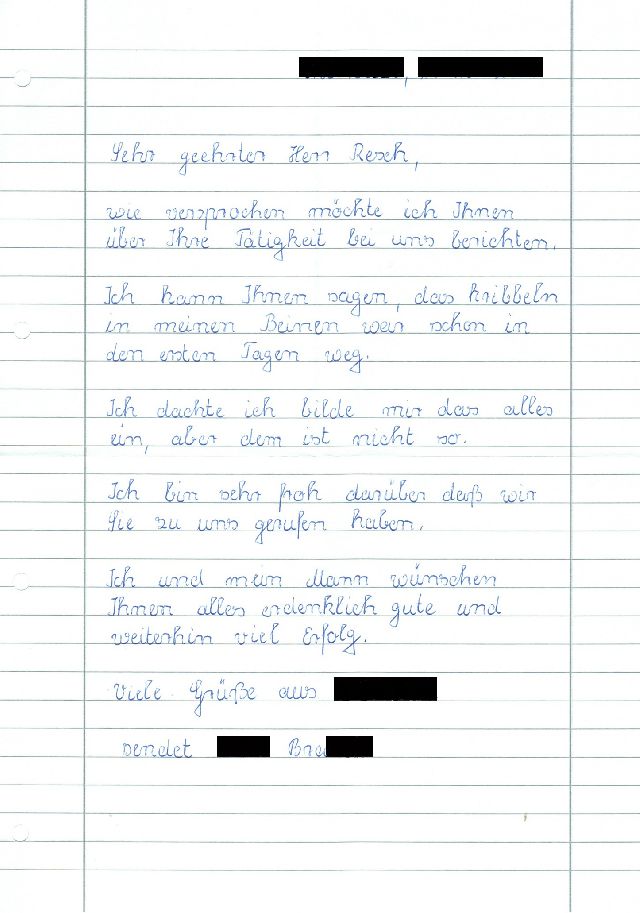 Sehr geehrter Herr Resch,
wie versprochen möchte ich Ihnen
über Ihre Tätigkeit bei uns berichten.
Ich kann Ihnen sagen, das kribbeln
in meinen Beinen war schon in
den ersten Tagen weg.
Ich dachte ich bilde mir das alles
ein, aber dem ist nicht so.
Ich bin sehr froh darüber daß wir
Sie zu uns gerufen haben.
Ich und mein Mann wünschen
Ihnen alles erdenklich gute und
weiterhin viel Erfolg.
Viele Grüße aus
sendet